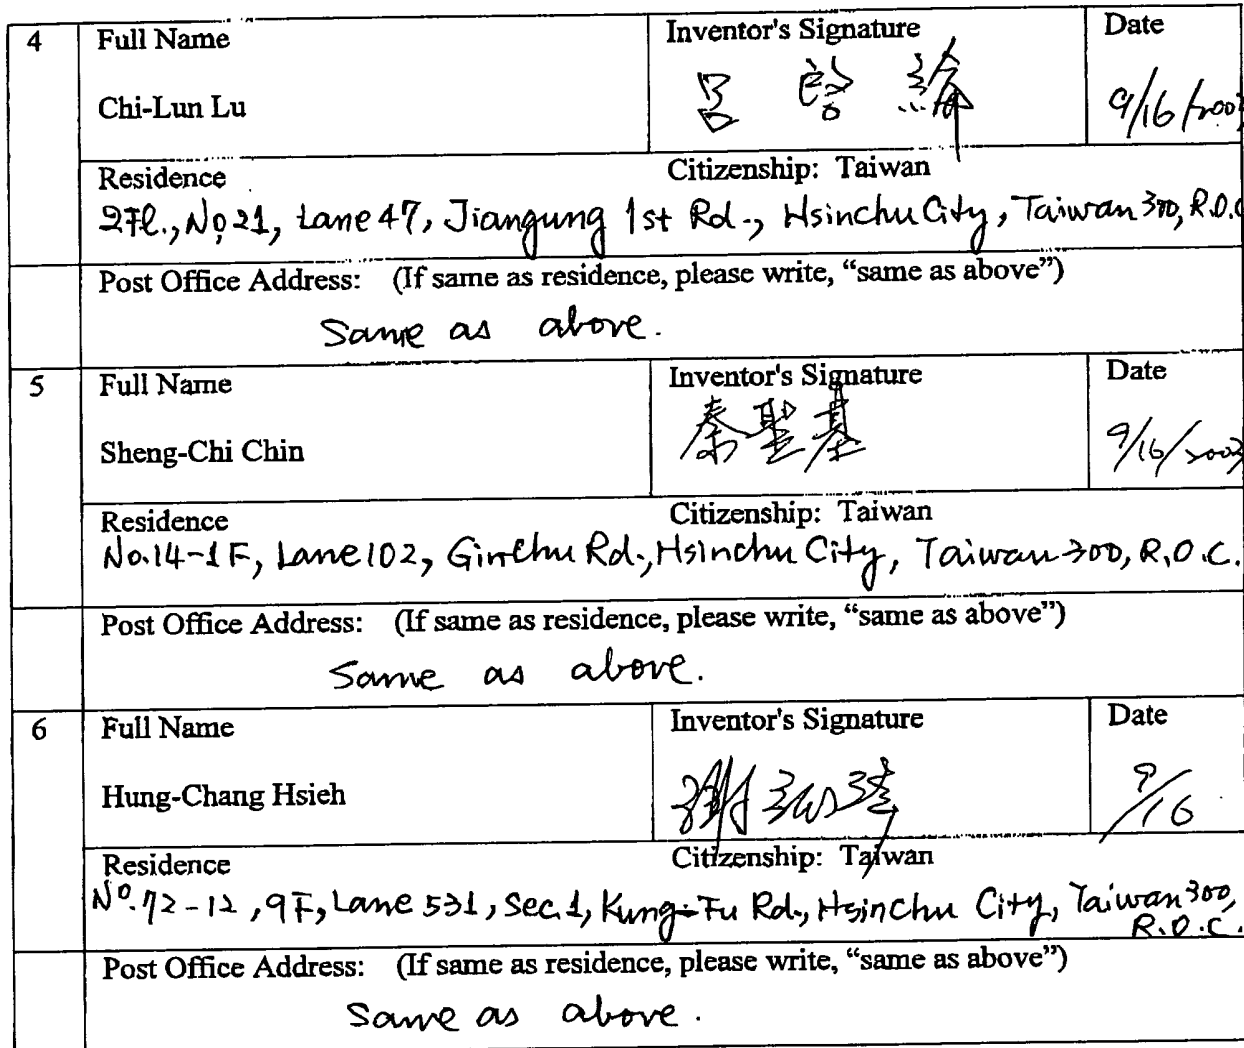 4 Full Name Inventor's Signature Date
Chi-Lun Lu 呂啓綸 9/16/2003
Residence Citizenship: Taiwan
2Fl., No 21, Lane 47, Jiangung 1st Rd., Hsinchu City, Taiwan 300, R.O.C
Post Office Address: (If same as residence, please write, “same as above”)
Same as above.
5 Full Name Inventor's Signature Date
Sheng-Chi Chin 秦聖基 9/16/2003
Residence Citizenship: Taiwan
No.14-1F, Lane 102, Ginchu Rd., Hsinchu City, Taiwan 300, R.O.C.
Post Office Address: (If same as residence, please write, “same as above”)
Same as above.
6 Full Name Inventor's Signature Date
Hung-Chang Hsieh 謝弘璋 9/16
Residence Citizenship: Taiwan
No.72-12, 9F, Lane 531, Sec.1, Kung-Fu Rd., Hsinchu City, Taiwan 300,
R.O.C.
Post Office Address: (If same as residence, please write, “same as above”)
Same as above.